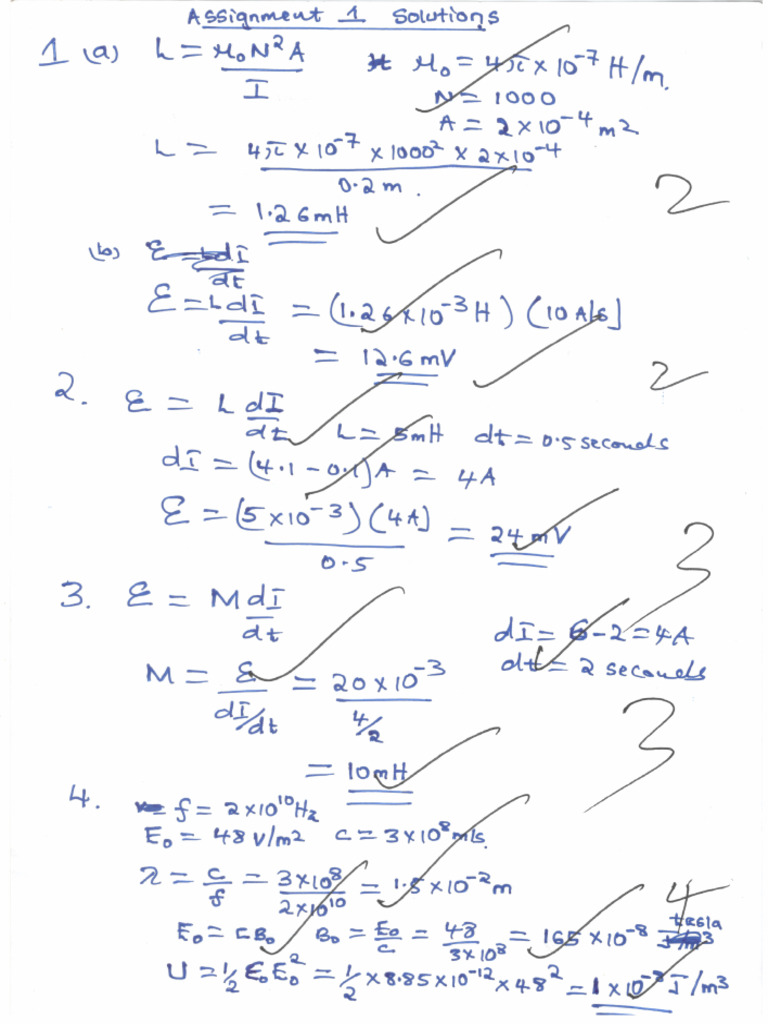 Assignment 1 Solutions
1 (a) L = μ₀N²A / I μ₀ = 4π × 10⁻⁷ H/m.
N = 1000
A = 2 × 10⁻⁴ m²
L = 4π × 10⁻⁷ × 1000² × 2×10⁻⁴ / 0.2 m.
= 1.26mH
2
(b) ε = LdI / dt
ε = L dI / dt = (1.26 × 10⁻³ H) (10 A/s]
= 12.6 mV
2
2. ε = L dI / dt L = 5mH dt = 0.5 seconds
dI = (4.1 – 0.1)A = 4A
ε = (5 × 10⁻³) (4A] / 0.5 = 24 mV
3
3. ε = M dI / dt
dI = 6 – 2 = 4A
dt = 2 seconds
M = ε / dI/dt = 20 × 10⁻³ / 4/2
= 10mH
3
4. f = 2 × 10¹⁰ Hz
E₀ = 48 V/m2 c = 3 × 10⁸ m/s.
λ = c / f = 3 × 10⁸ / 2 × 10¹⁰ = 1.5 × 10⁻² m
4
E₀ = cB₀ B₀ = E₀ / c = 48 / 3×10⁸ = 165 × 10⁻⁸ tesla
U = ½ ε₀E₀² = ½ × 8.85 × 10⁻¹² × 48² = 1 × 10⁻⁸ J/m³